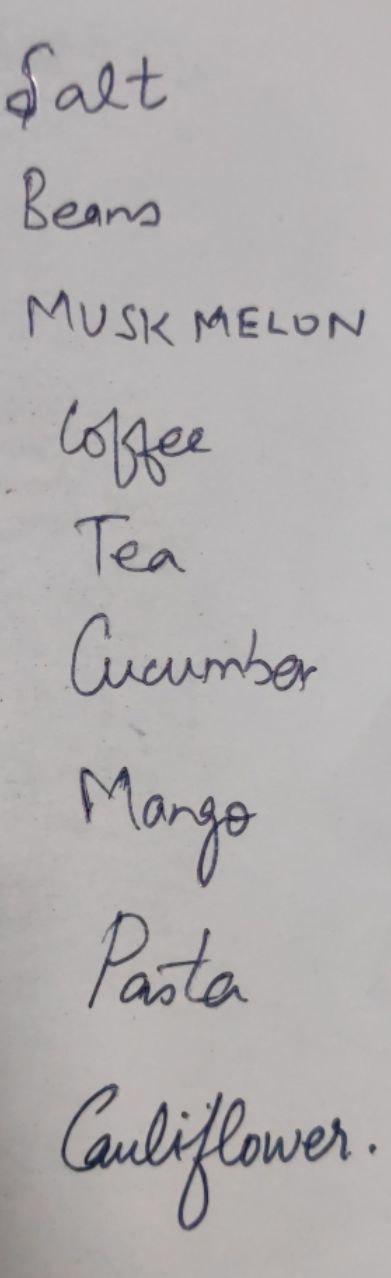 Salt
Beans
MUSK MELON
Coffee
Tea
Cucumber
Mango
Pasta
Cauliflower.